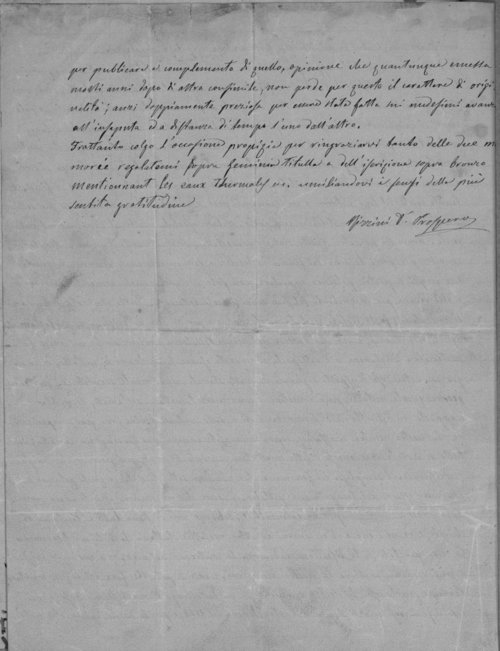 per publicare a complemento di quello, opinione che quantunque emessa
molti anni dopo d'altra consimile, non perde per questo il carattere di origi
nalità; anzi doppiamente preziosa per essere stata fatta sui medesimi avanzi
all'insaputa ed a distanza di tempo l'uno dall'altro.
Trattanto colgo l'occasione propizia per ringraziarvi tanto delle due m
morée regalatemi sopra feminine titulla e dell'iscrizione sopra bronzo
mentionnant les eaux thermales ec. umiliandovi i sensi della più
sentita gratitudine
D. Prospero